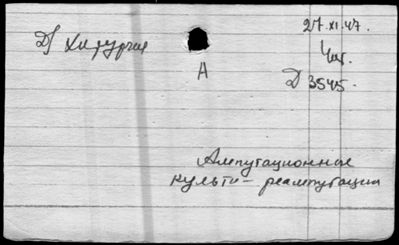 Д/ Хирургия
27.XI.47.
Чит.
А
Д 3545.
Ампутационные
культи - реампутации